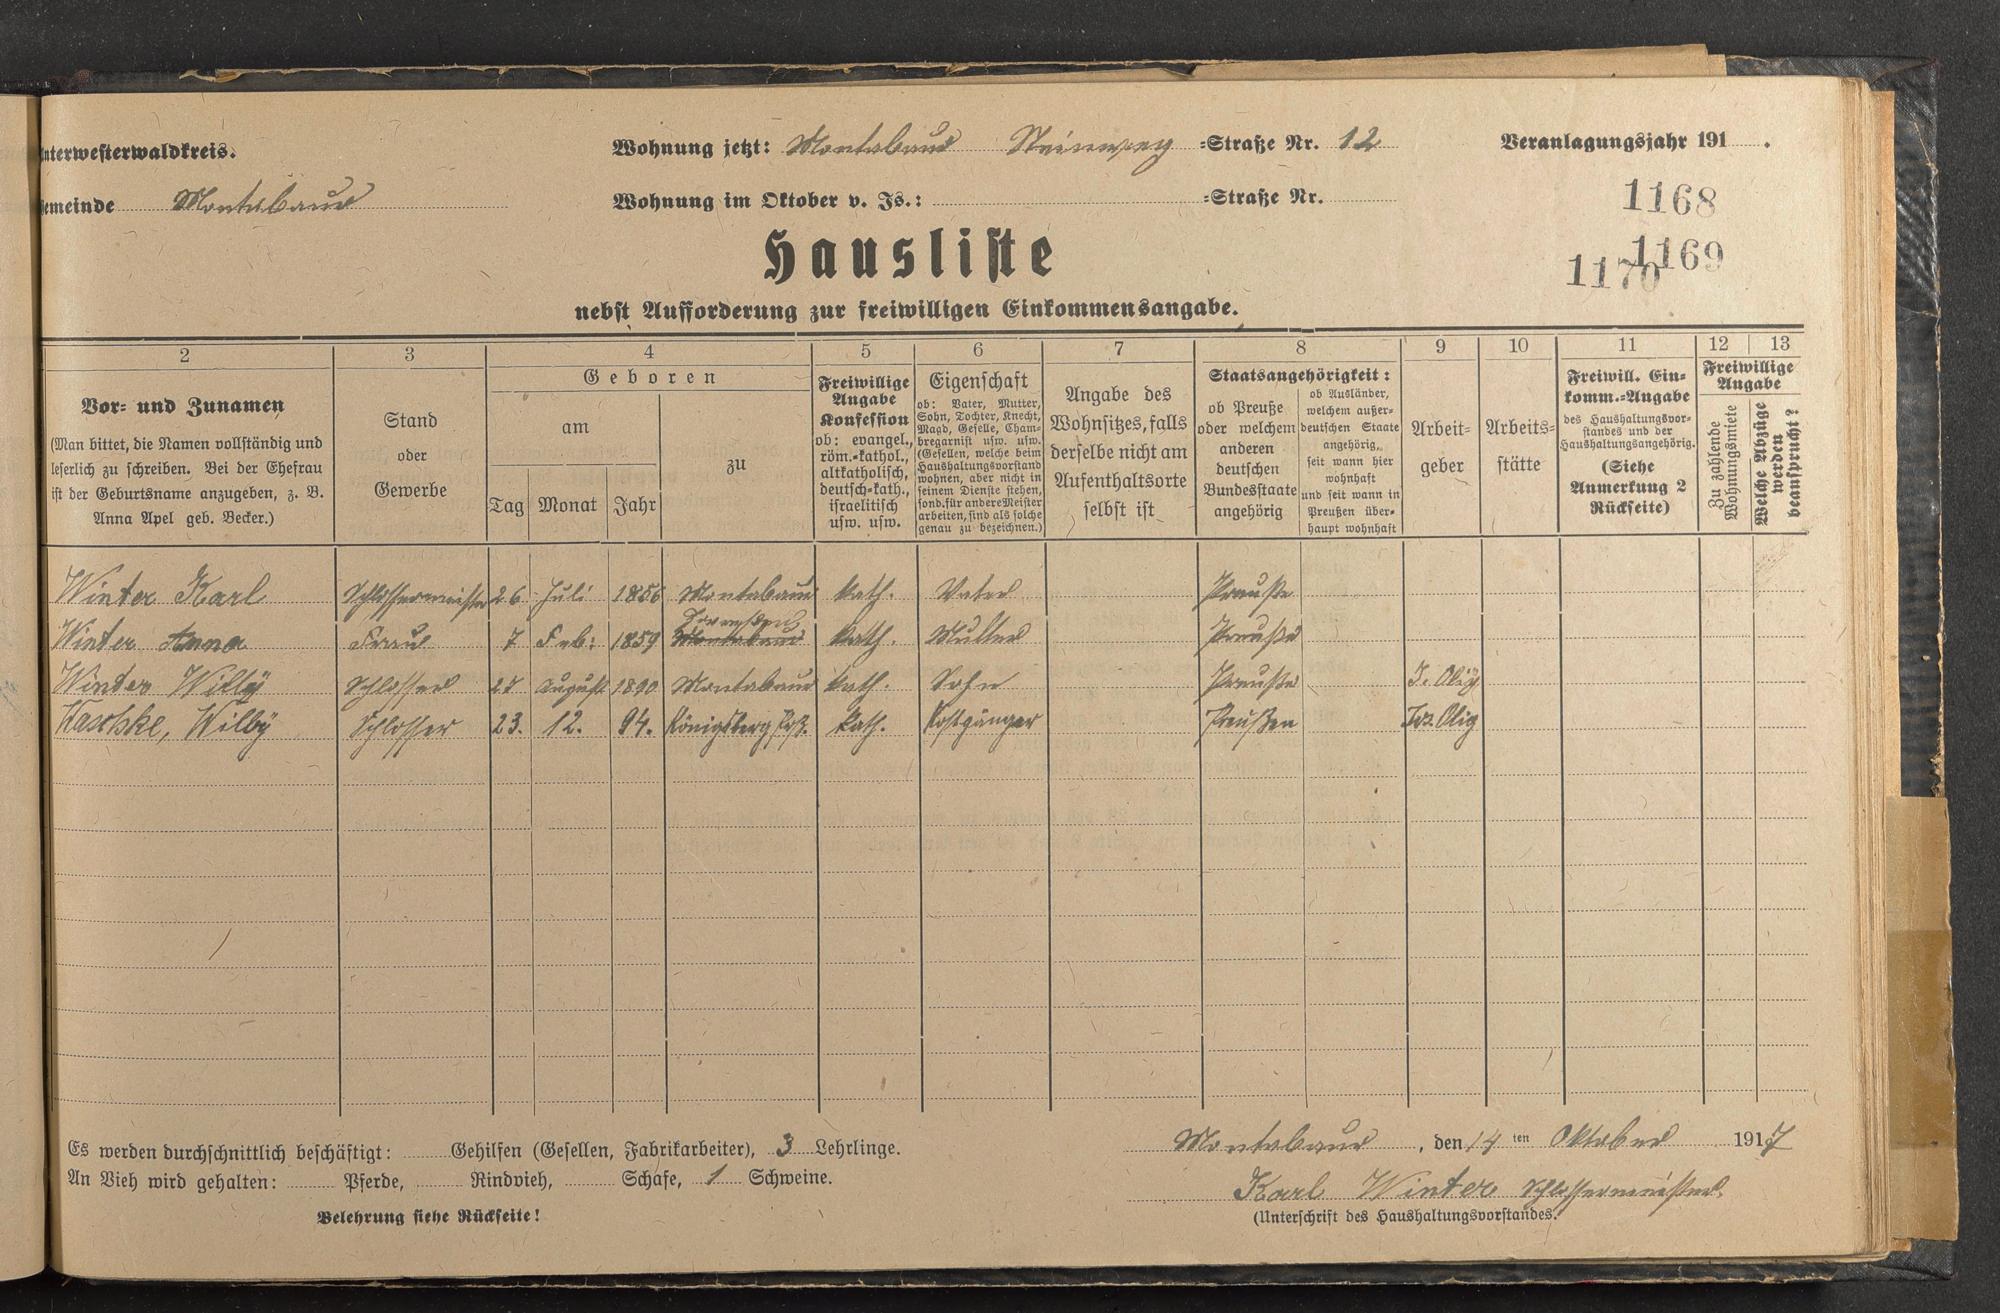 Unterwesterwaldkreis. Wohnung jetzt: Montabaur Steinweg =Straße Nr. 12 Veranlagungsjahr 191 .
Gemeinde Montabaur Wohnung im Oktober v. Js.: =Straße Nr.
1168
1169
1170
Hausliste
nebst Aufforderung zur freiwilligen Einkommensangabe.
2 3 4 5 6 7 8 9 10 11 12 13
Vor- und Zunamen
(Man bittet, die Namen vollständig und
leserlich zu schreiben. Bei der Ehefrau
ist der Geburtsname anzugeben, z. B.
Anna Apel geb. Becker.)
Stand
oder
Gewerbe
Geboren
am
Tag Monat Jahr
zu
Freiwillige
Angabe
Konfession
ob: evangel.,
röm.-kathol.,
altkatholisch,
deutsch-kath.,
israelitisch
usw. usw.
Eigenschaft
ob: Vater, Mutter,
Sohn, Tochter, Knecht,
Magd, Geselle, Cham-
bregarnist usw. usw.
(Gesellen, welche beim
Haushaltungsvorstand
wohnen, aber nicht in
seinem Dienste stehen,
sond. für andere Meister
arbeiten, sind als solche
genau zu bezeichnen.)
Angabe des
Wohnsitzes, falls
derselbe nicht am
Aufenthaltsorte
selbst ist
Staatsangehörigkeit:
ob Preuße
oder welchem
anderen
deutschen
Bundesstaate
angehörig
ob Ausländer,
welchem außer-
deutschen Staate
angehörig,
seit wann hier
wohnhaft
und seit wann in
Preußen über-
haupt wohnhaft
Arbeit-
geber
Arbeits-
stätte
Freiwill. Ein-
komm.-Angabe
des Haushaltungsvor-
standes und der
Haushaltungsangehörig.
(Siehe
Anmerkung 2
Rückseite)
Freiwillige
Angabe
Zu zahlende
Wohnungsmiete
Welche Abzüge
werden
beansprucht?
Winter Karl Schlossermeister 26 Juli 1856 Montabaur kath. Vater Preuße
Winter Anna Frau 7 Feb: 1859 Montabaur kath. Mutter Preuße
Winter Willy Schlosser August 1890 Montabaur kath. Sohn Preuße J. Olig
Kaschke, Willy Schlosser 23. 12. 94. Königsberg kath. Kostgänger Preußen Jos. Olig
Es werden durchschnittlich beschäftigt: Gehilfen (Gesellen, Fabrikarbeiter), 3 Lehrlinge.
An Vieh wird gehalten: Pferde, Rindvieh, Schafe, 1 Schweine.
Belehrung siehe Rückseite!
Montabaur, den 14 ten Oktober 1917
Karl Winter Schlossermeister.
(Unterschrift des Haushaltungsvorstandes.